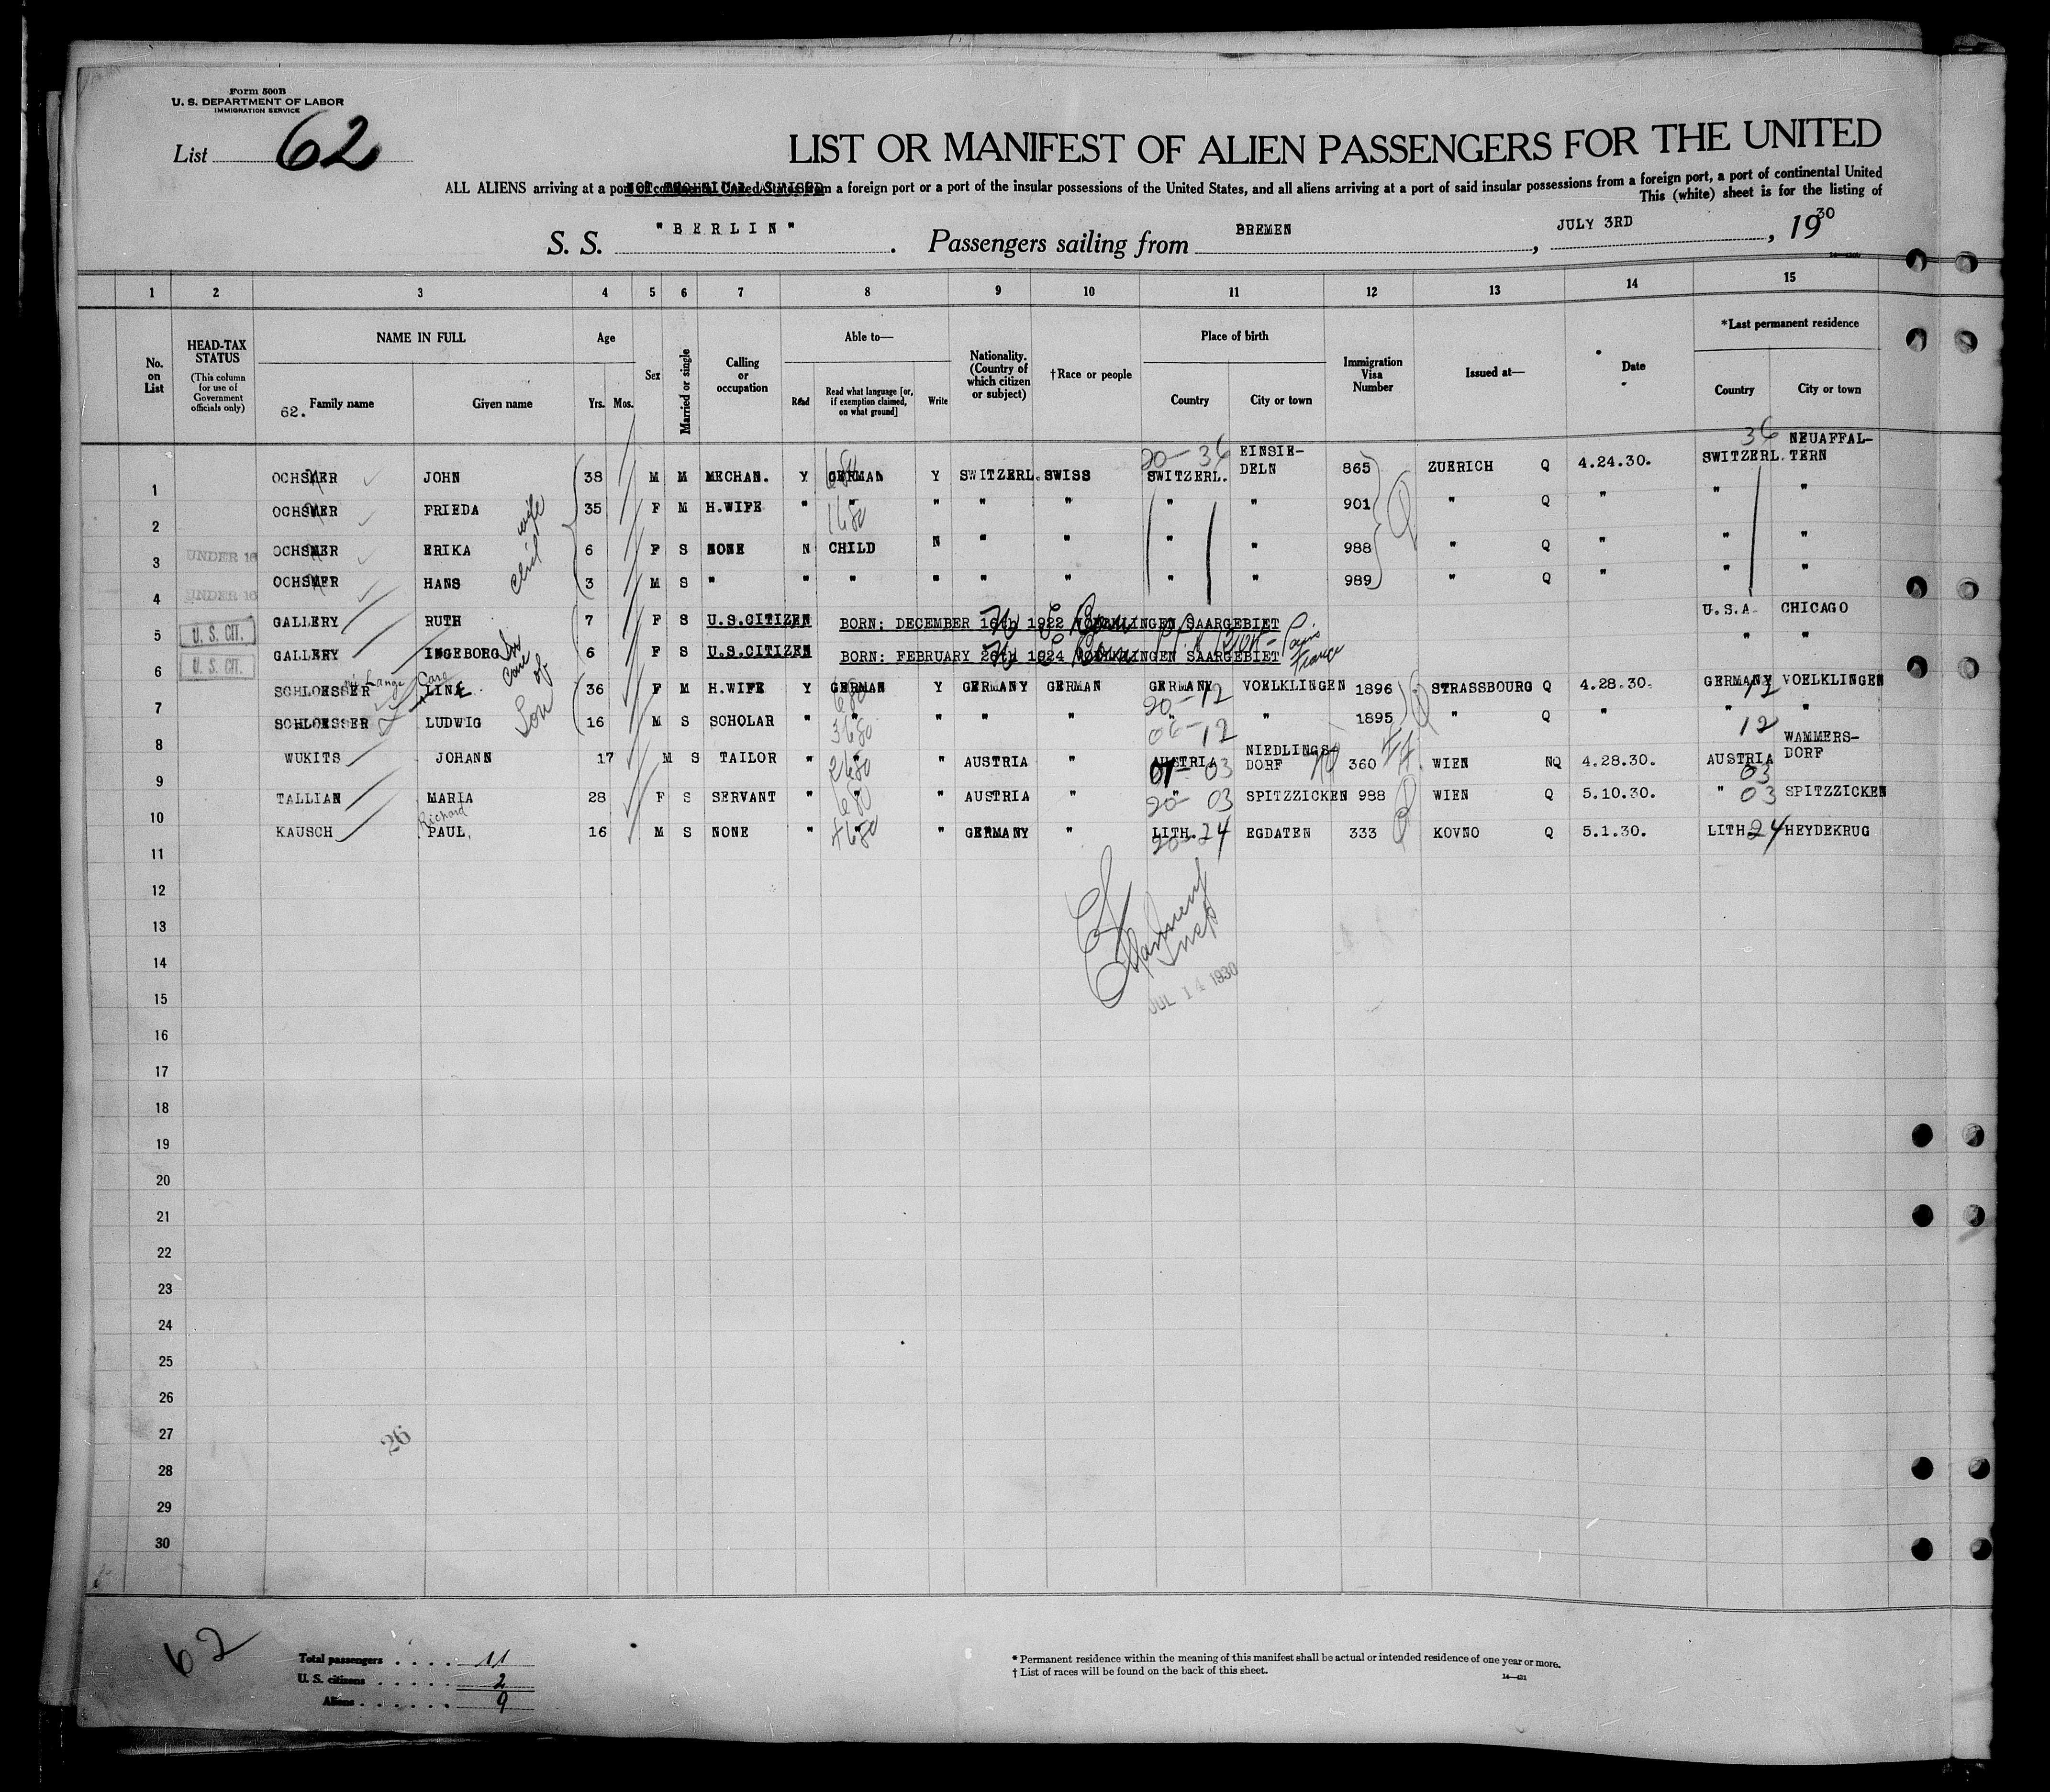 Form 500B
U. S. DEPARTMENT OF LABOR
IMMIGRATION SERVICE
List 62
LIST OR MANIFEST OF ALIEN PASSENGERS FOR THE UNITED
ALL ALIENS arriving at a port of continental United States from a foreign port or a port of the insular possessions of the United States, and all aliens arriving at a port of said insular possessions from a foreign port, a port of continental United
This (white) sheet is for the listing of
S. S. "BERLIN". Passengers sailing from BREMEN, JULY 3RD, 1930
1 2 3 4 5 6 7 8 9 10 11 12 13 14 15
No. on List
HEAD-TAX STATUS
(This column for use of Government officials only)
NAME IN FULL
62. Family name
Given name
Age
Yrs. Mos.
Sex
Married or single
Calling or occupation
Able to—
Read
Read what language [or, if exemption claimed, on what ground]
Write
Nationality. (Country of which citizen or subject)
†Race or people
Place of birth
Country
City or town
Immigration Visa Number
Issued at—
Date
*Last permanent residence
Country
City or town
1 OCHSNER JOHN 38 M M MECHAN. Y GERMAN Y SWITZERL. SWISS 20-36 SWITZERL. EINSIE-DELN 865 ZUERICH Q 4.24.30. 36 SWITZERL. NEUAFFAL-TERN
2 OCHSNER FRIEDA wife 35 F M H.WIFE " " " " " " " 901 " Q " " "
3 UNDER 16 OCHSNER ERIKA 6 F S NONE N CHILD N " " " " 988 " Q " " "
4 UNDER 16 OCHSNER HANS 3 M S " " " " " " " " 989 " Q " " "
5 U. S. CIT. GALLERY RUTH 7 F S U.S.CITIZEN BORN: DECEMBER 16th 1922 VOELKLINGEN SAARGEBIET U.S.A. CHICAGO
6 U. S. CIT. GALLERY INGEBORG In care of 6 F S U.S.CITIZEN BORN: FEBRUARY 26th 1924 VOELKLINGEN SAARGEBIET Paris France " "
7 SCHLOESSER LINE 36 F M H.WIFE Y GERMAN Y GERMANY GERMAN GERMANY 20-12 VOELKLINGEN 1896 STRASSBOURG Q 4.28.30. GERMANY 12 VOELKLINGEN
8 SCHLOESSER LUDWIG Son 16 M S SCHOLAR " " " " " " 06-12 " 1895 " Q " " 12 "
9 WUKITS JOHANN 17 M S TAILOR " " " AUSTRIA " AUSTRIA 01-03 NIEDLINGS-DORF 360 WIEN NQ 4.28.30. AUSTRIA 03 WAMMERS-DORF
10 TALLIAN MARIA 28 F S SERVANT " " " AUSTRIA " " 20-03 SPITZZICKEN 988 WIEN Q 5.10.30. " 03 SPITZZICKEN
11 KAUSCH Richard PAUL, 16 M S NONE " " " GERMANY " LITH. 20-24 EGDATEN 333 KOVNO Q 5.1.30. LITH 24 HEYDEKRUG
12
13
14
JUL 14 1930
15
16
17
18
19
20
21
22
23
24
25
26
27
26
28
29
30
62
Total passengers . . . . 11
U. S. citizens . . . . . 2
Aliens . . . . . . 9
* Permanent residence within the meaning of this manifest shall be actual or intended residence of one year or more.
† List of races will be found on the back of this sheet.